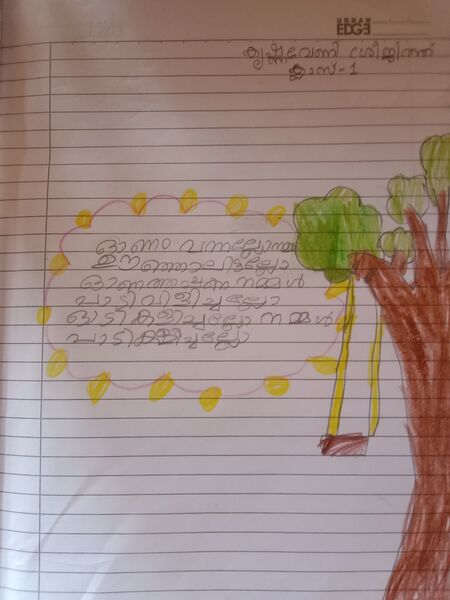 URBAN
EDGE
കൃഷ്ണവേണി ശ്രീജിത്ത്
ക്ലാസ്-1
ഓണം വന്നല്ലോ
ഊഞ്ഞാലിട്ടല്ലോ
നമ്മൾ
പാടിവിളിച്ചല്ലോ
ഓടികളിച്ചല്ലോ നമ്മൾ
പാടികളിച്ചല്ലോ